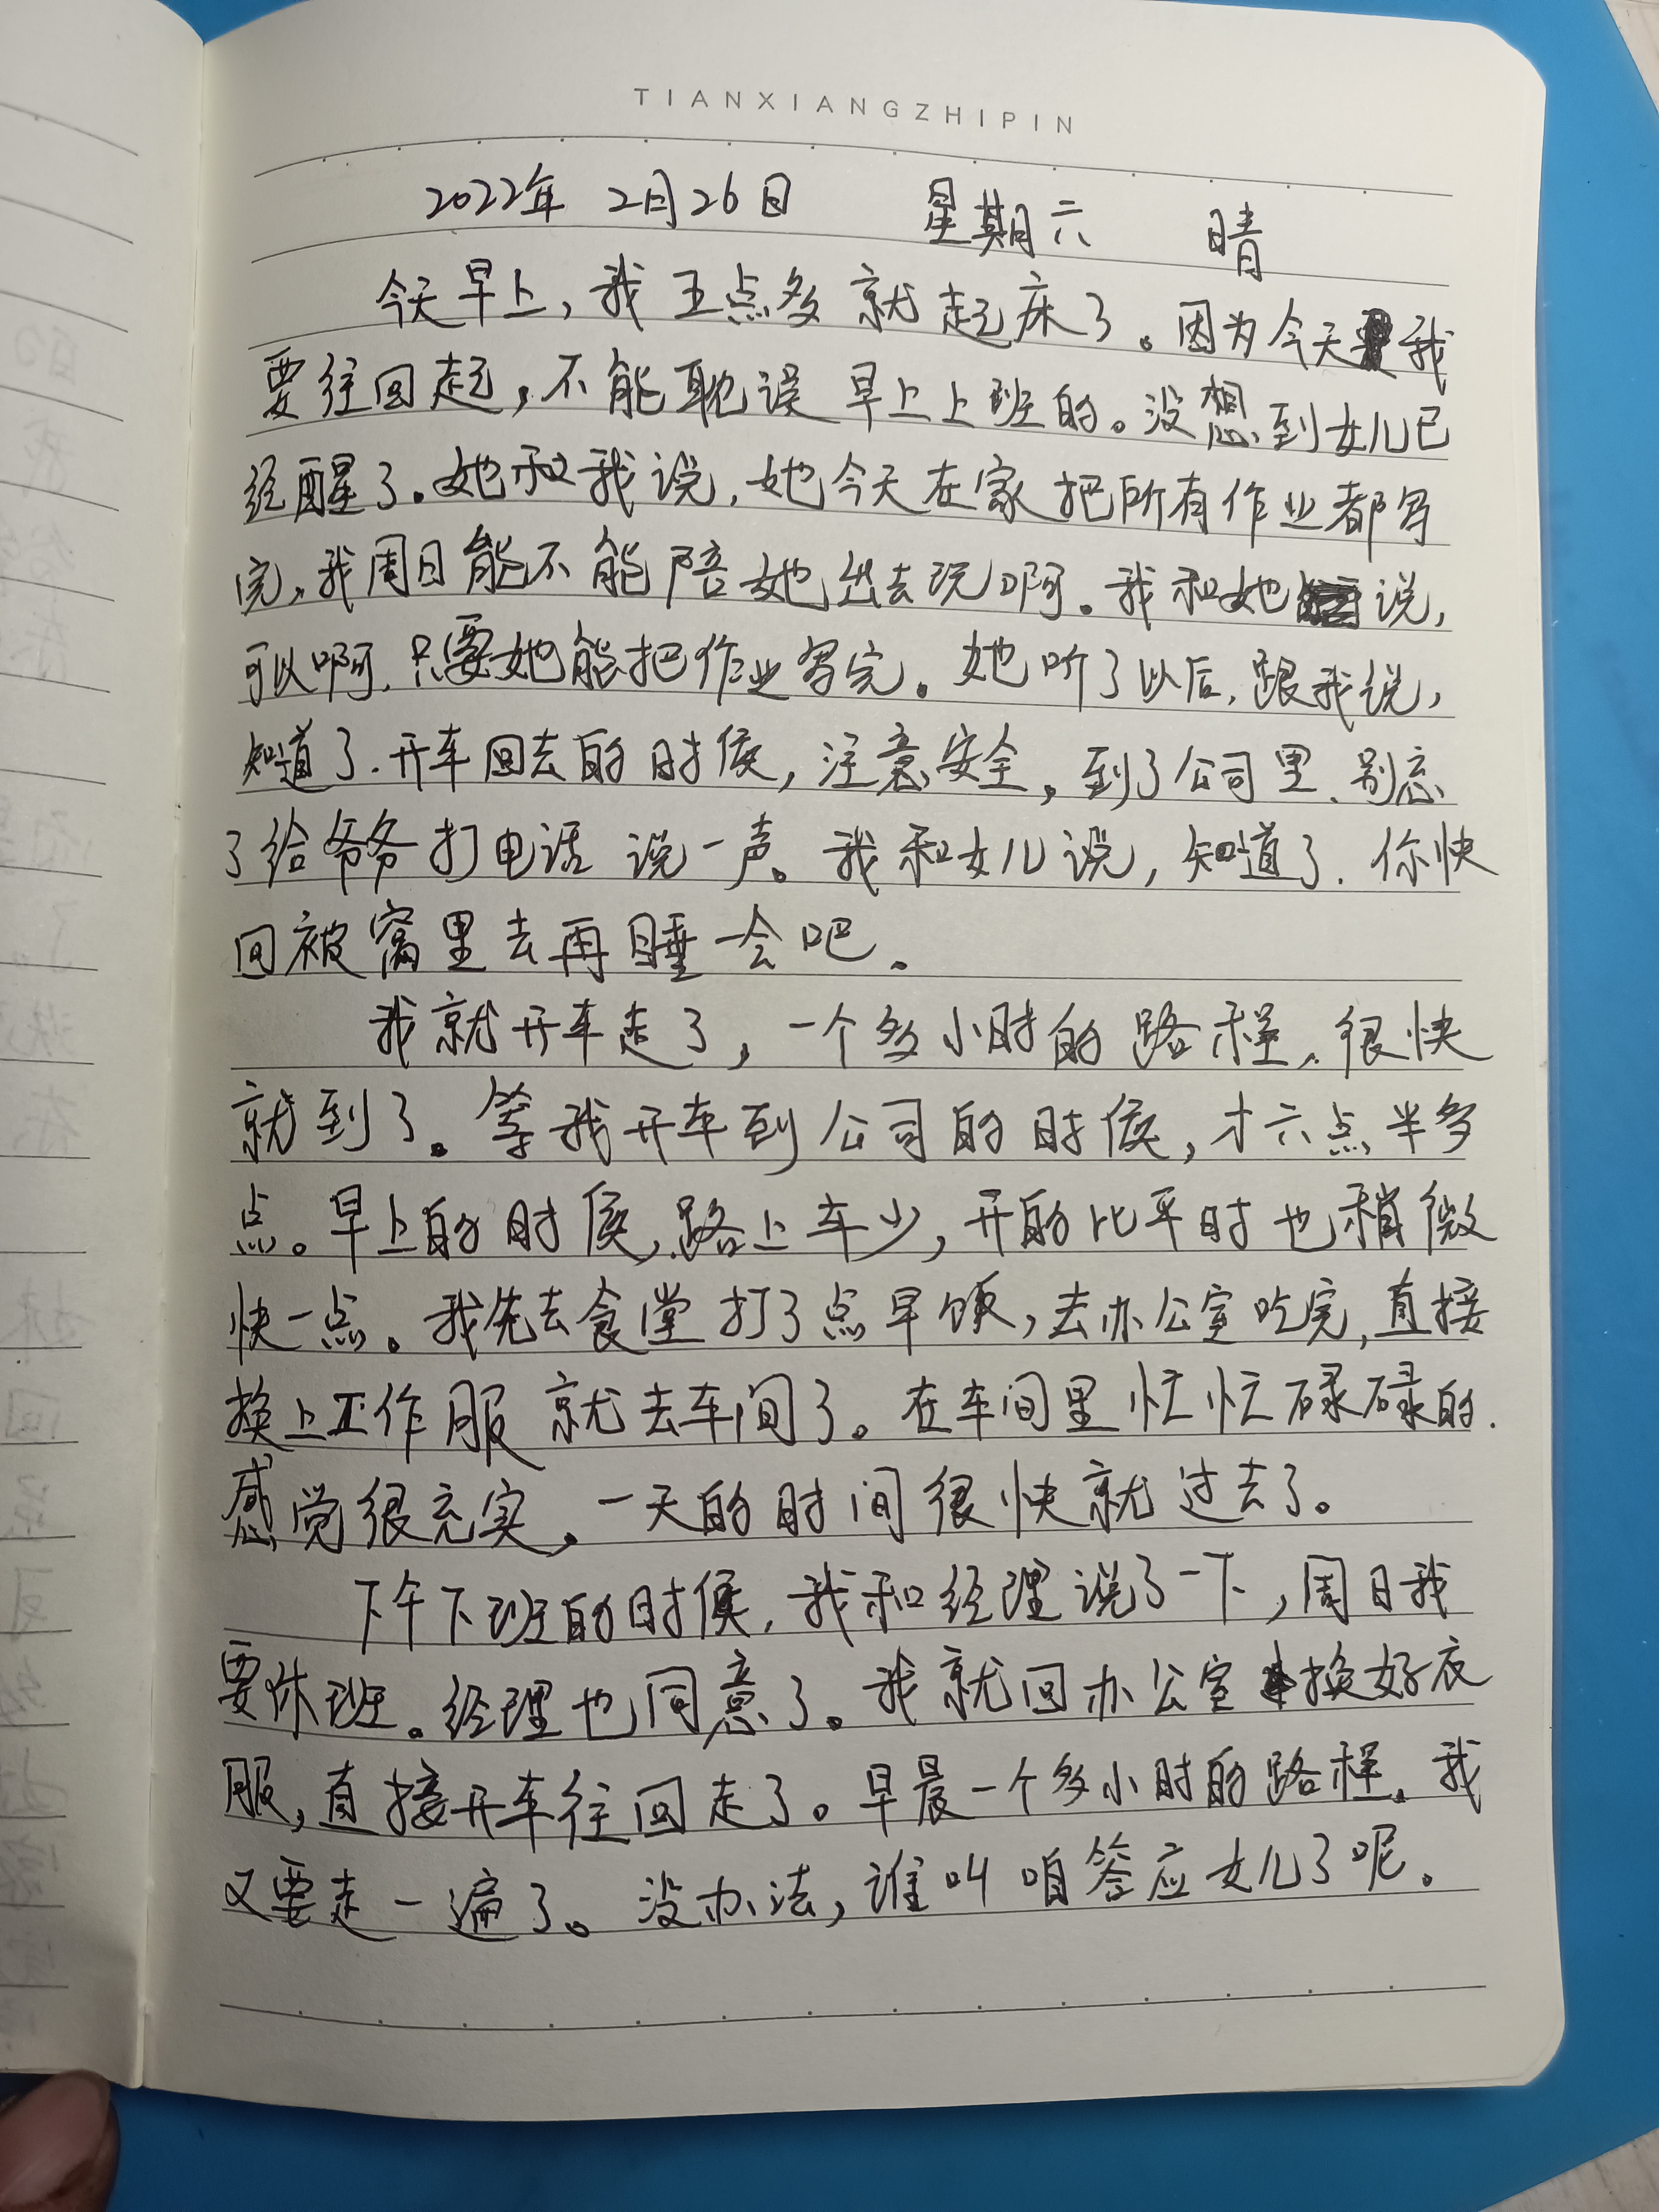 TIANXIANGZHIPIN
2022年 2月26日 星期六 晴
今天早上，我五点多就起床了。因为今天我
要往回赶，不能耽误早上上班的。没想到女儿已
经醒了。她和我说，她今天在家把所有作业都写
完，我周日能不能陪她出去玩啊。我和她说，
可以啊，只要她能把作业写完。她听了以后，跟我说，
知道了，开车回去的时候，注意安全，到了公司里，别忘
了给爷爷打电话说一声。我和女儿说，知道了，你快
回被窝里去再睡一会吧。
我就开车走了，一个多小时的路程，很快
就到了。等我开车到公司的时候，才六点半多
点。早上的时候，路上车少，开的比平时也稍微
快一点。我先去食堂打了点早饭，去办公室吃完，直接
换上工作服就去车间了。在车间里忙忙碌碌的，
感觉很充实，一天的时间很快就过去了。
下午下班的时候，我和经理说了一下，周日我
要休班。经理也同意了。我就回办公室换好衣
服，直接开车往回走了。早晨一个多小时的路程，我
又要走一遍了。没办法，谁叫咱答应女儿了呢。